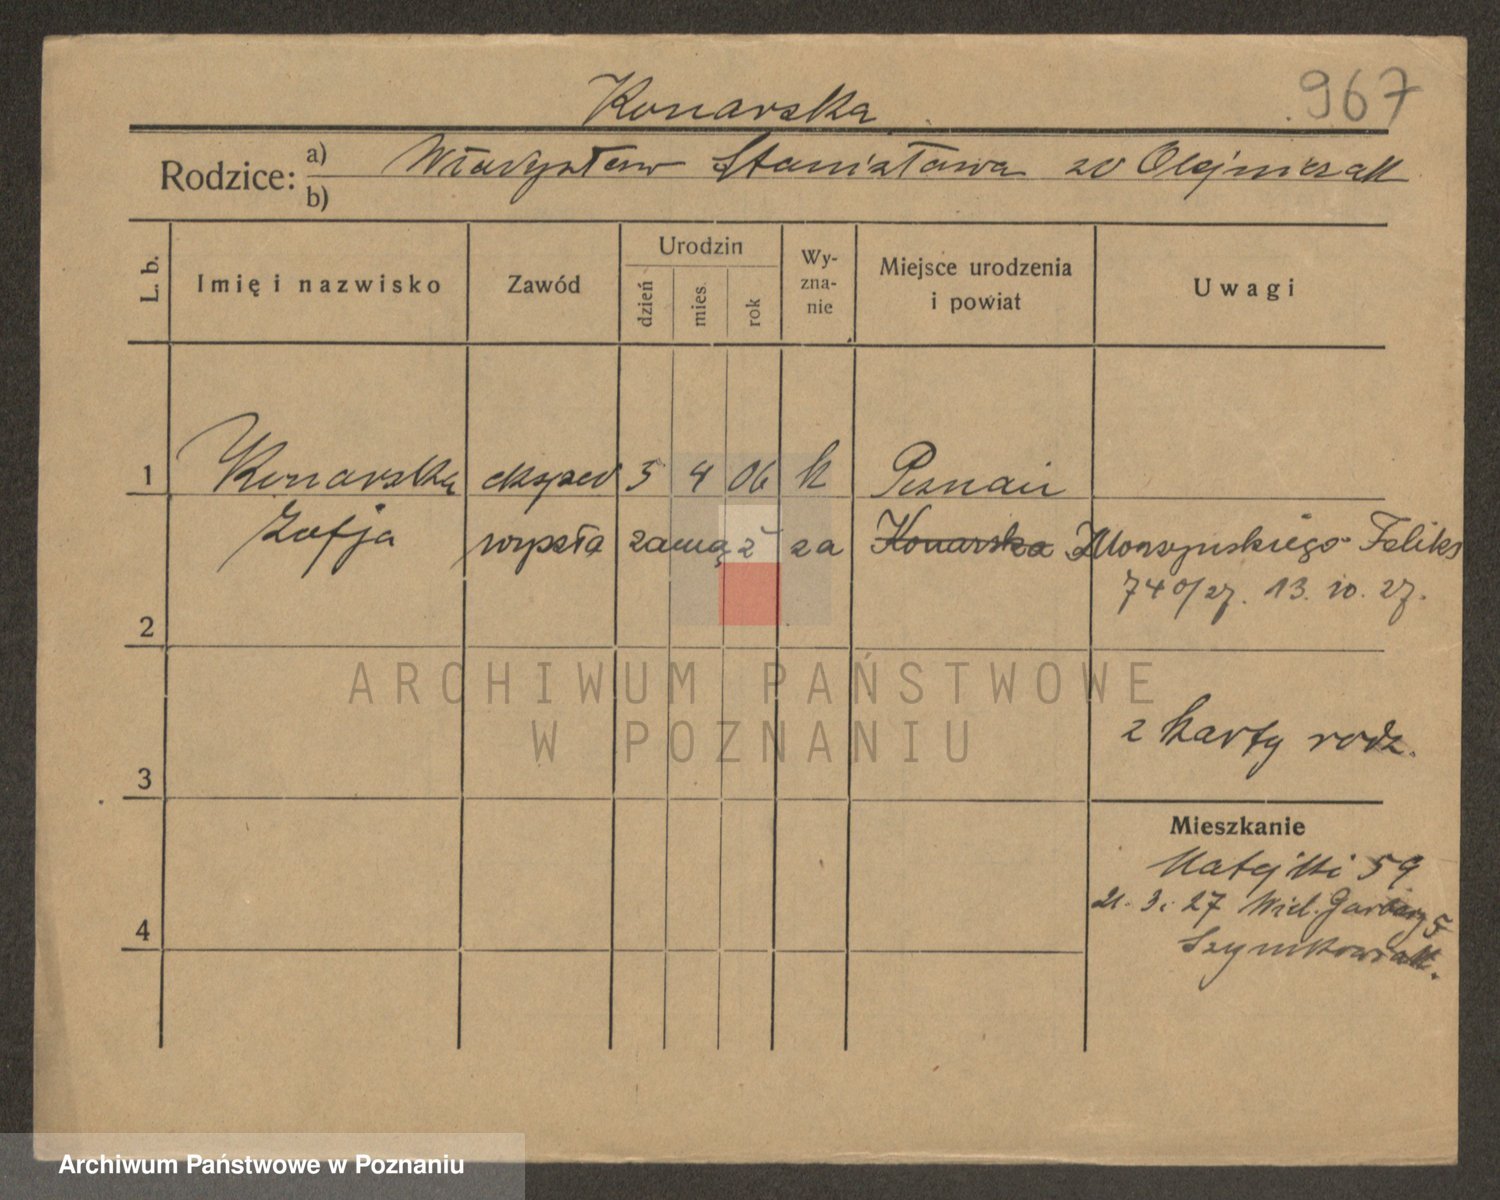 967
Konarska
Rodzice: a) b) Władysław Stanisława zd Olejniczak
L. b.
Imię i nazwisko
Zawód
Urodzin
dzień
mies.
rok
Wy-
zna-
nie
Miejsce urodzenia
i powiat
Uwagi
1 Konarska eksped 5 4 06 k Poznań
Zofja wyszła zamąż za Konarska Feliks
740/27. 13. 10. 27.
2
z karty rodz.
3
Mieszkanie
Matejki 59
21. 3. 27 Wiel. Garbary 5
4
Szymkowiak.
ARCHIWUM PAŃSTWOWE
W POZNANIU
Archiwum Państwowe w Poznaniu